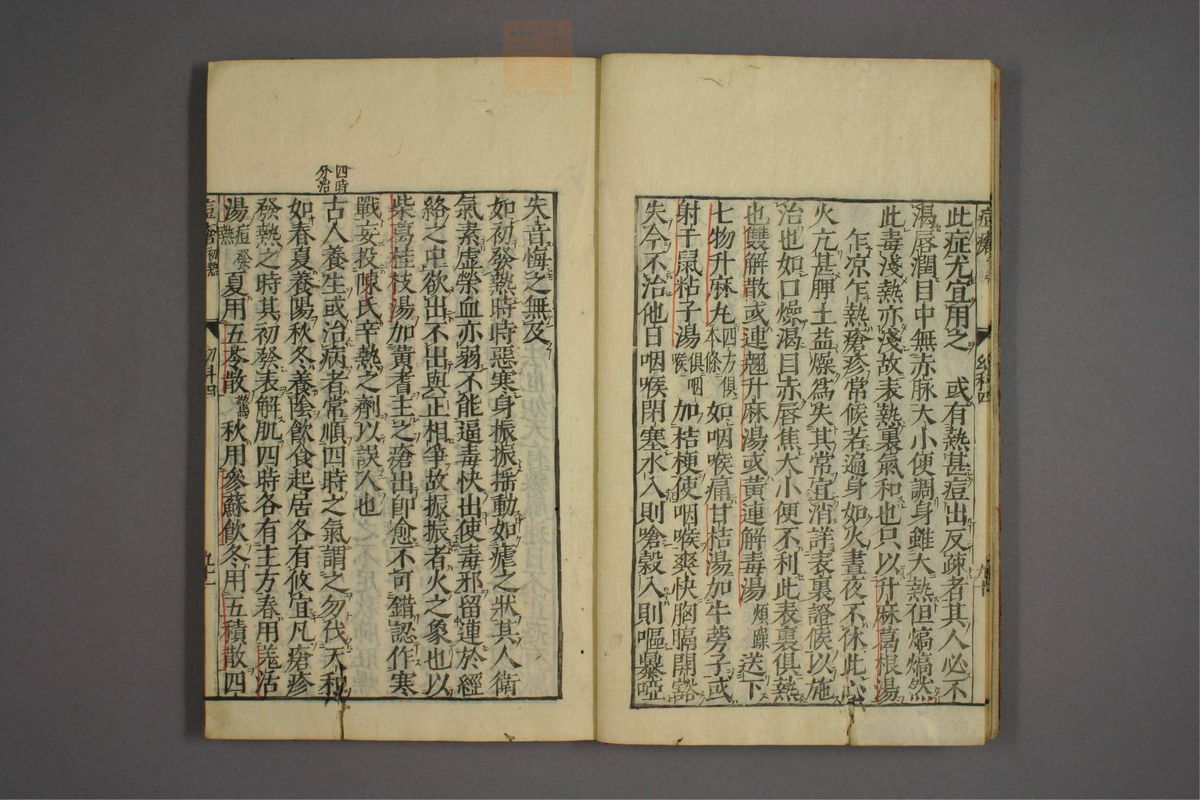 此症尤宜用之　或有熱甚痘出反疎者其人必不
渴唇潤目中無赤脉大小便調身雖大熱但熇熇然
此毒淺熱亦淺故表熱裏氣和也只以升麻葛根湯
乍凉乍熱瘡疹常候若遍身如火晝夜不休此心
火亢甚脾土益燥爲失其常宜消詳表裏證候以施
治也如口燥渴目赤唇焦大小便不利此表裏俱熱
也雙解散或連翹升麻湯或黃連解毒湯煩躁送下
七物升麻丸四方俱本條如咽喉痛甘桔湯加牛蒡子或
射干鼠粘子湯俱咽喉加桔梗使咽喉爽快胸膈開豁
失今不治他日咽喉閉塞水入則嗆穀入則嘔暴啞
幼科四
九十
失音悔之無及
如初發熱時時惡寒身振振揺動如瘧之狀其人衛
氣素虛榮血亦弱不能逼毒快出使毒邪留連於經
絡之中欲出不出與正相爭故振振者火之象也以
柴葛桂枝湯加黃耆主之瘡出即愈不可錯認作寒
戰妄投陳氏辛熱之劑以誤人也
四時
分治
古人養生或治病者常順四時之氣謂之勿伐天和
如春夏養陽秋冬養陰飲食起居各有攸宜凡瘡疹
發熱之時其初發表解肌四時各有主方春用羗活
湯痘發熱夏用五苓散驚秋用參蘇飲冬用五積散四
痘瘡初熱
幼科四
九十一